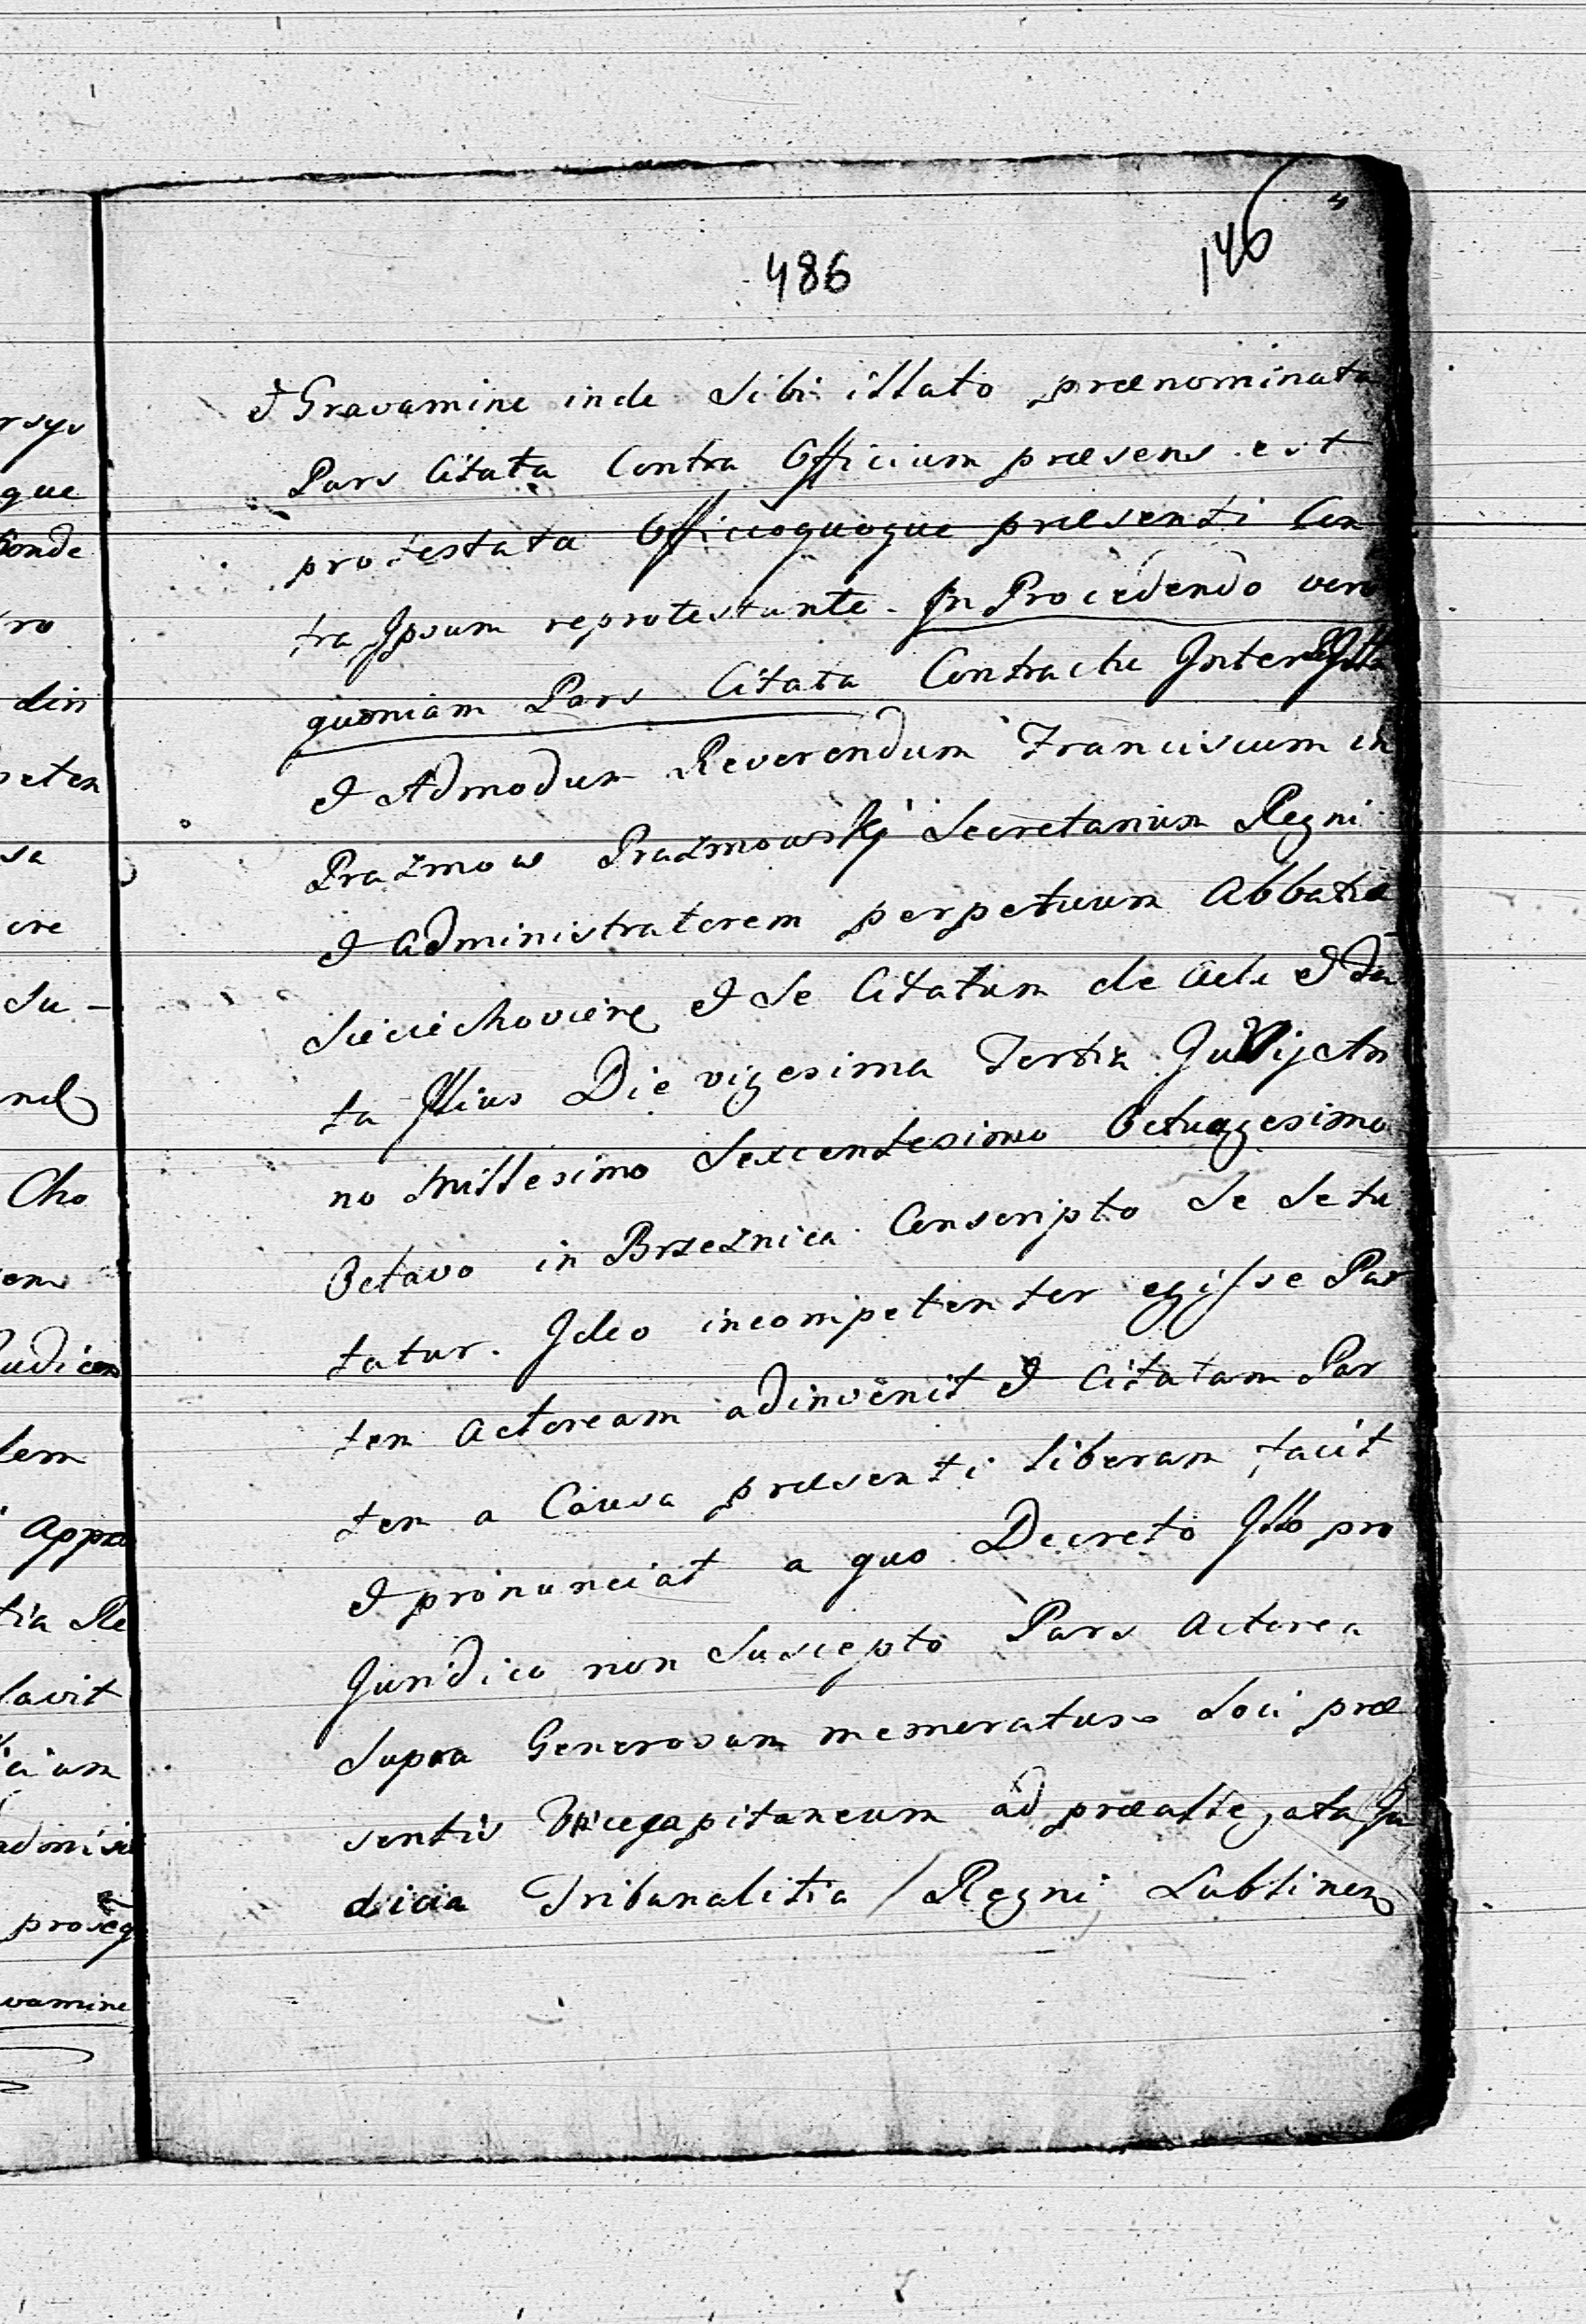 486
146
& Gravamine inde Sibi illato prænominata
Pars Citata Contra Officium præsens est
protestata Officioquoque præsenti Con
tra Ipsum reprotestante. In Procedendo vero
quoniam Pars Citata Contractu Inter
& Admodum Reverendum Franciscum in
Prażmow Prażmowskj Secretarium Regni
& Administratorem perpetuum Abbatiæ
Sieciechovien & Se Citatum de Actu & Da
ta Illius Die vigesima Tertia Julij An
no Millesimo Sexcentesimo Octuagesimo
Octavo in Brzeżnica Conscripto Se Se tu
tatur. Ideo incompetenter egisse Par
tem Actoream adinvenit & Citatam Par
tem a Causa præsenti liberam facit
& pronunciat a quo Decreto Illo pro
Juridico non Suscepto Pars Actorea
Supra Generosum memoratum Loci præ
sentis Vicecapitaneum ad præallegata Ju
dicia Tribunalitia Regni Lublinen
rsys
que
ro
din
peten
sa
ore
Su-
Cho
em
Judicem
dem
Appe
tia Re
lavit
cium
proseq
vamine